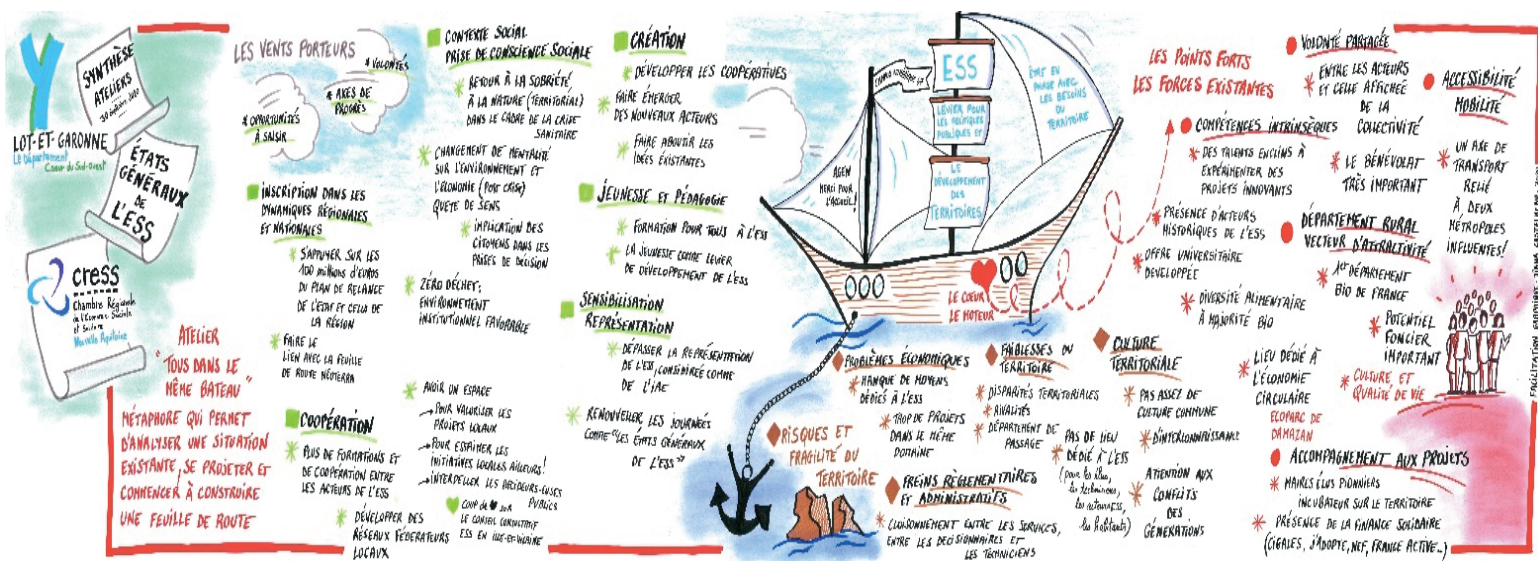 SYNTHÈSE
ATELIERS
LOT-ET-GARONNE
Le Département
Coeur du Sud-Ouest
ÉTATS
GÉNÉRAUX
DE
L'ESS
cress
Chambre Régionale
de l'Économie Sociale
et Solidaire
Nouvelle Aquitaine
ATELIER
"TOUS DANS LE
MÊME BATEAU"
MÉTAPHORE QUI PERMET
D'ANALYSER UNE SITUATION
EXISTANTE, SE PROJETER ET
COMMENCER À CONSTRUIRE
UNE FEUILLE DE ROUTE
LES VENTS PORTEURS
* VOLONTÉS
* AXES DE
PROGRÈS
* OPPORTUNITÉS
À SAISIR
INSCRIPTION DANS LES
DYNAMIQUES RÉGIONALES
ET NATIONALES
* S'APPUYER SUR LES
100 MILLIONS D'EUROS
DU PLAN DE RELANCE
DE L'ÉTAT ET CELUI DE
LA RÉGION
* FAIRE LE
LIEN AVEC LA FEUILLE
DE ROUTE NÉOTERRA
COOPÉRATION
* PLUS DE FORMATIONS ET
DE COOPÉRATION ENTRE
LES ACTEURS DE L'ESS
* DÉVELOPPER DES
RÉSEAUX FÉDÉRATEURS
LOCAUX
CONTEXTE SOCIAL
PRISE DE CONSCIENCE SOCIALE
* RETOUR À LA SOBRIÉTÉ,
À LA NATURE (TERRITORIAL)
DANS LE CADRE DE LA CRISE
SANITAIRE
* CHANGEMENT DE MENTALITÉ
SUR L'ENVIRONNEMENT ET
L'ÉCONOMIE (POST CRISE)
QUÊTE DE SENS
* IMPLICATION DES
CITOYENS DANS LES
PRISES DE DÉCISION
* ZÉRO DÉCHET;
ENVIRONNEMENT
INSTITUTIONNEL FAVORABLE
* AVOIR UN ESPACE
→ POUR VALORISER LES
PROJETS LOCAUX
→ POUR ESSAIMER LES
INITIATIVES LOCALES AILLEURS!
→ INTERPELLER LES DÉCIDEURS-EUSES
PUBLICS
COUP DE ♥ SUR
LE CONSEIL CONSULTATIF
ESS EN ILLE-ET-VILAINE
CRÉATION
* DÉVELOPPER LES COOPÉRATIVES
* FAIRE ÉMERGER
DES NOUVEAUX ACTEURS
* FAIRE ABOUTIR LES
IDÉES EXISTANTES
JEUNESSE ET PÉDAGOGIE
* FORMATION POUR TOUS À L'ESS
* LA JEUNESSE COMME LEVIER
DE DÉVELOPPEMENT DE L'ESS
SENSIBILISATION
REPRÉSENTATION
* DÉPASSER LA REPRÉSENTATION
DE L'ESS, CONSIDÉRÉ COMME
DE L'IAE
* RENOUVELLER LES JOURNÉES
COMME "LES ÉTATS GÉNÉRAUX
DE L'ESS"
ESS
LEVIER POUR
LES POLITIQUES
PUBLIQUES ET
LE
DÉVELOPPEMENT
DES
TERRITOIRES
ÊTRE EN
PHASE AVEC
LES BESOINS
DU
TERRITOIRE
AGEN
MERCI POUR
L'ACCUEIL!
LE COEUR
LE MOTEUR
RISQUES ET
FRAGILITÉ DU
TERRITOIRE
PROBLÈMES ÉCONOMIQUES
* MANQUE DE MOYENS
DÉDIÉS À L'ESS
* TROP DE PROJETS
DANS LE MÊME
DOMAINE
FREINS RÈGLEMENTAIRES
ET ADMINISTRATIFS
* CLOISONNEMENT ENTRE LES SERVICES,
ENTRE LES DÉCISIONNAIRES ET
LES TECHNICIENS
FAIBLESSES DU
TERRITOIRE
* DISPARITÉS TERRITORIALES
* RIVALITÉS
* DÉPARTEMENT DE
PASSAGE
* PAS DE LIEU
DÉDIÉ À L'ESS
(pour les élus,
les techniciens,
les habitants)
CULTURE
TERRITORIALE
* PAS ASSEZ DE
CULTURE COMMUNE
* D'INTERCONNAISSANCE
* ATTENTION AUX
CONFLITS
DES
GÉNÉRATIONS
LES POINTS FORTS
LES FORCES EXISTANTES
COMPÉTENCES INTRINSÈQUES
* DES TALENTS ENCLINS À
EXPÉRIMENTER DES
PROJETS INNOVANTS
* PRÉSENCE D'ACTEURS
HISTORIQUES DE L'ESS
* OFFRE UNIVERSITAIRE
DÉVELOPPÉE
* DIVERSITÉ ALIMENTAIRE
À MAJORITÉ BIO
* LIEU DÉDIÉ À
L'ÉCONOMIE
CIRCULAIRE
ECOPARC DE
DAMAZAN
VOLONTÉ PARTAGÉE
* ENTRE LES ACTEURS
ET CELLE AFFICHÉE
DE LA
COLLECTIVITÉ
* LE BÉNÉVOLAT
TRÈS IMPORTANT
DÉPARTEMENT RURAL
VECTEUR D'ATTRACTIVITÉ
* 1er DÉPARTEMENT
BIO DE FRANCE
* POTENTIEL
FONCIER
IMPORTANT
* CULTURE ET
QUALITÉ DE VIE
ACCESSIBILITÉ
MOBILITÉ
* UN AXE DE
TRANSPORT
RELIÉ
À DEUX
MÉTROPOLES
INFLUENTES!
ACCOMPAGNEMENT AUX PROJETS
* MAIRES ÉLUS PIONNIERS
INCUBATEUR SUR LE TERRITOIRE
* PRÉSENCE DE LA FINANCE SOLIDAIRE
(CIGALES, J'ADOPTE, NEF, FRANCE ACTIVE...)
FACILITATION